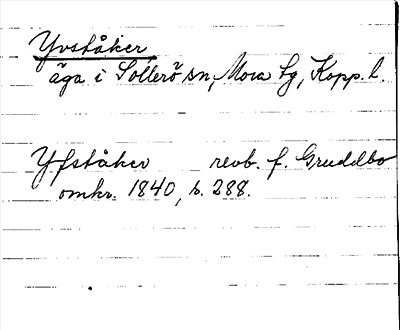 Yvståker,
äga i Sollerö sn, Mora tg, Kopp. l.
Yfståker revb. f. Gruddbo
omkr. 1840, s. 288.